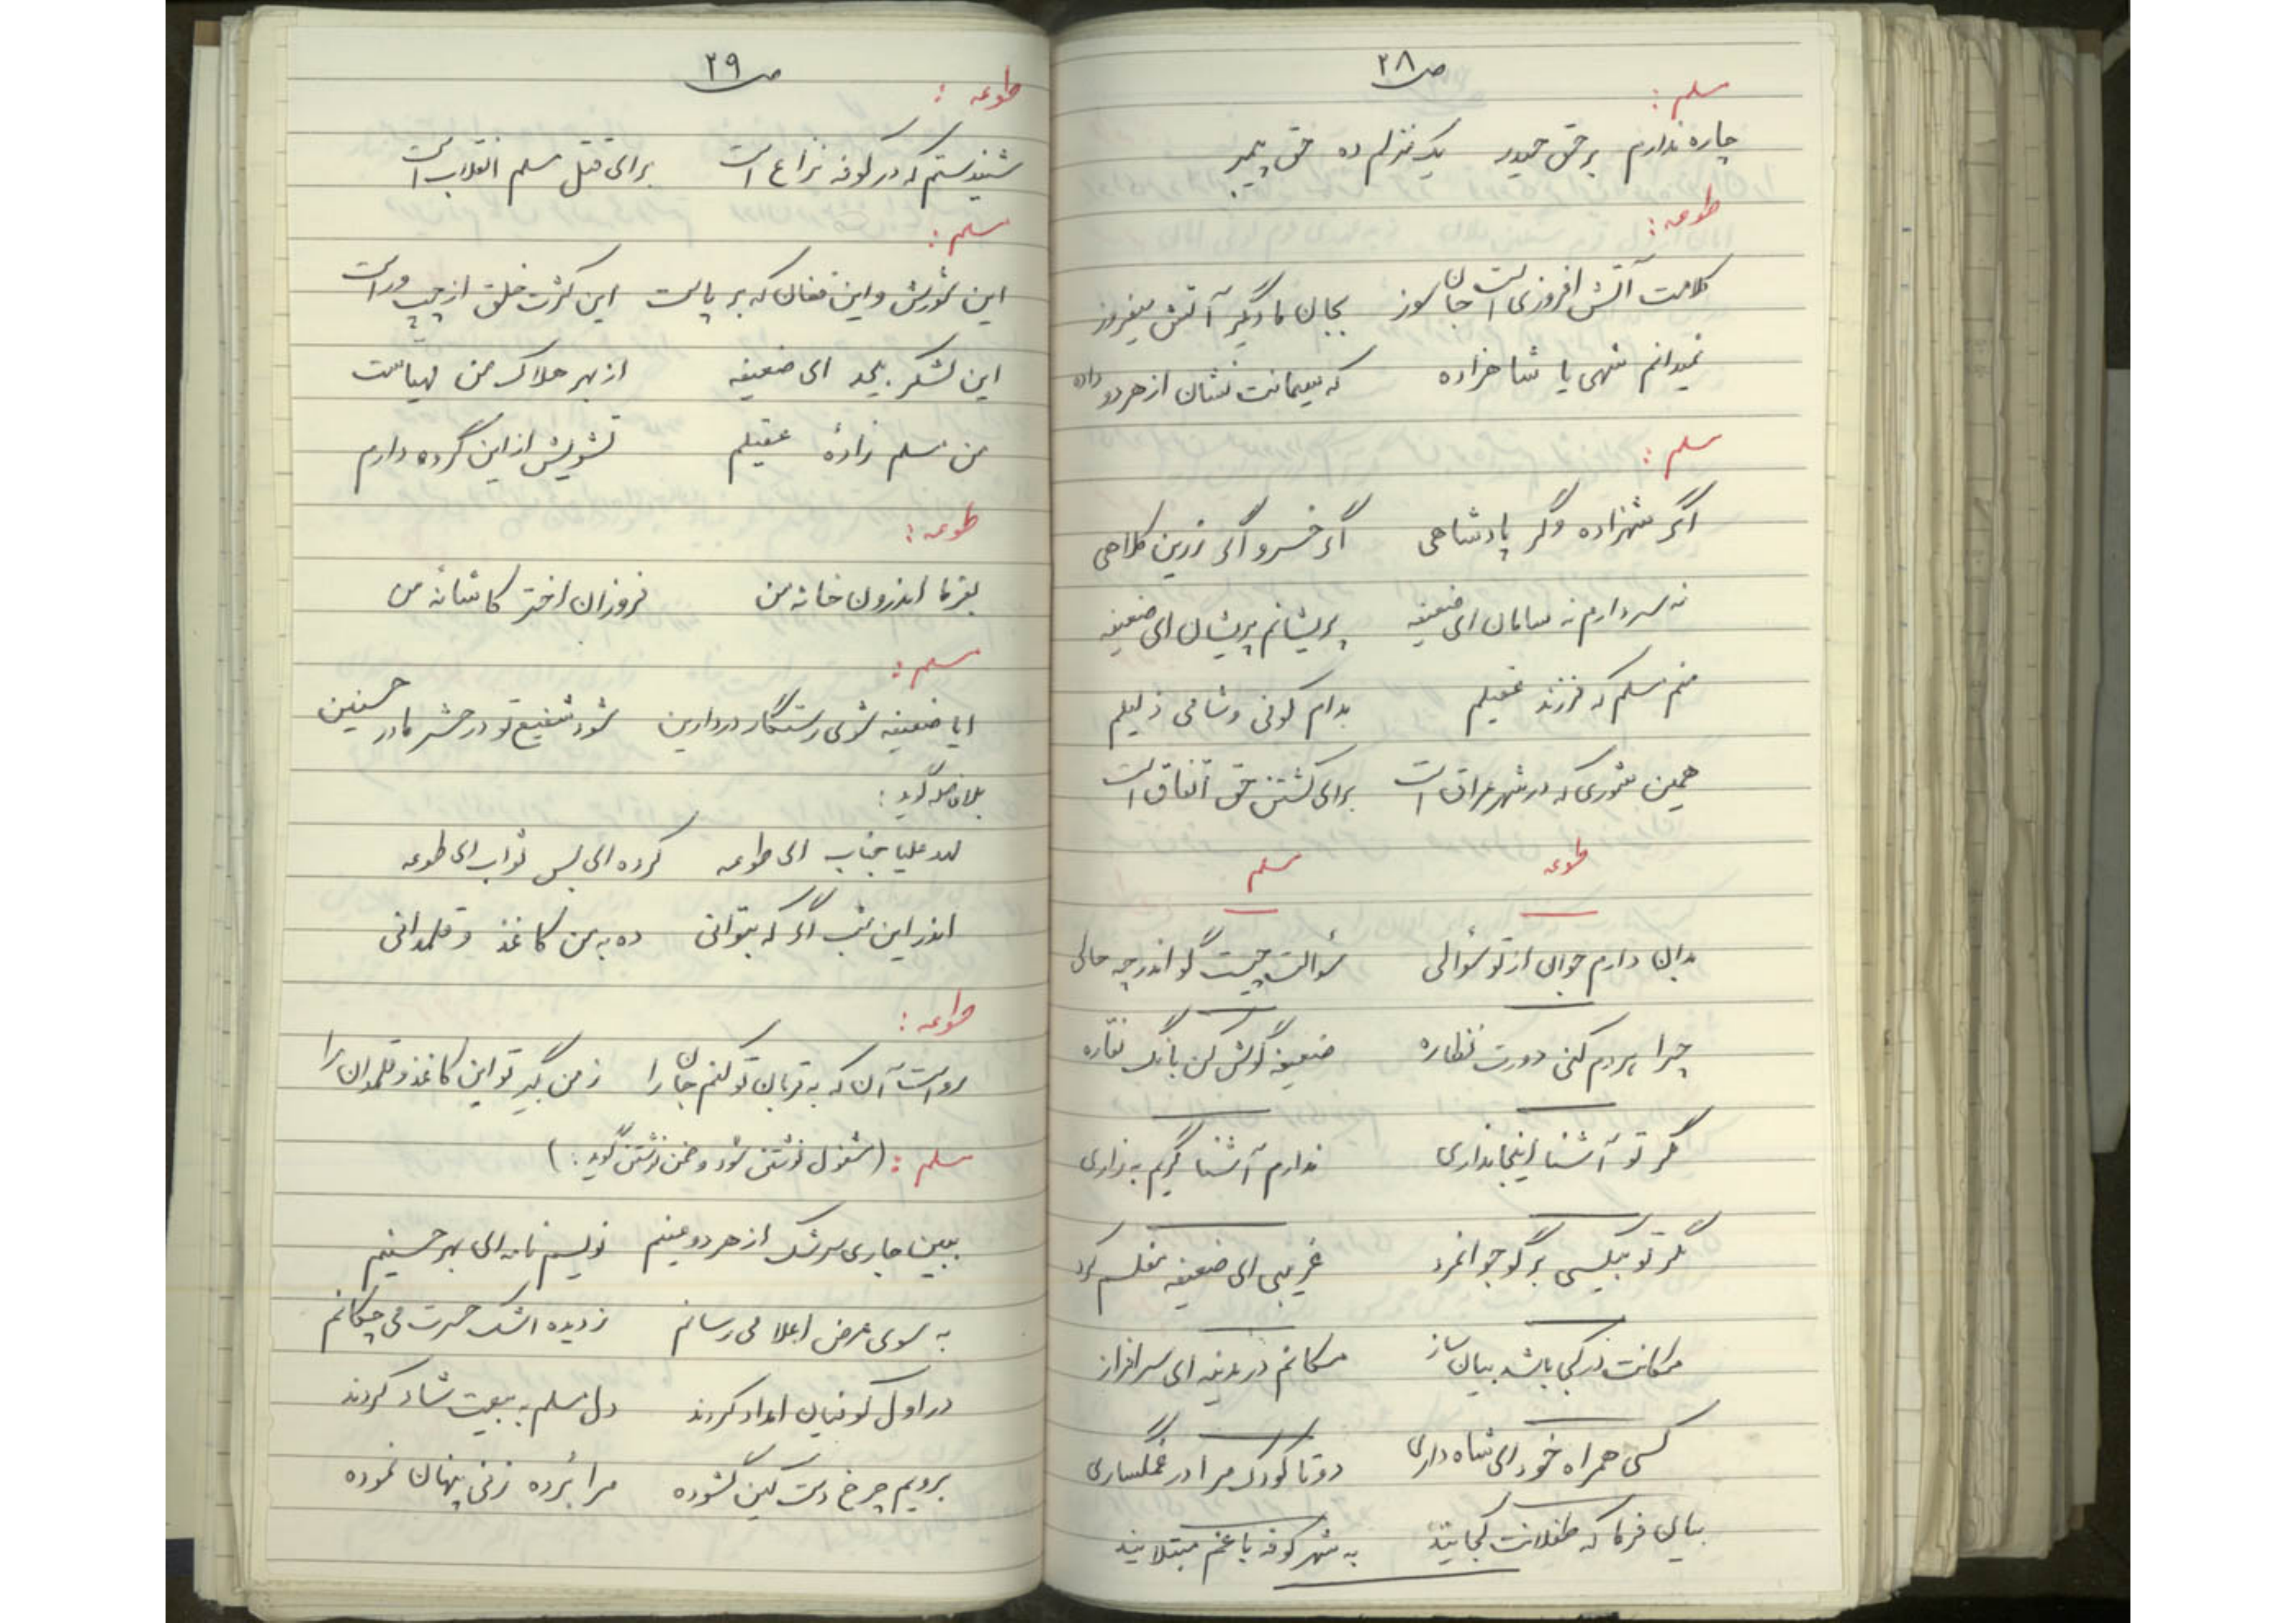 ص ۲۸
مسلم :
چاره ندارم برحق حیدر یک منزلم ده حق پیمبر
طوعه :
کلامت آتش افروزی است جان سوز بجان ما دگر آتش میفروز
نمیدانم شهی یا شاهزاده که سیمانت نشان از هر دو داده
مسلم :
اگر شهزاده وگر پادشاهی اگر خسرو اگر زرین کلاهی
نه سر دارم نه سامان ای ضعیفه پریشانم پریشان ای ضعیفه
منم مسلم که فرزند عقیلم بدام کوفی و شامی ذلیلم
همین شوری که در شهر عراق است برای کشتن حق اتفاق است
طوعه مسلم
بدان دارم جوان از تو سؤالی سؤالت چیست گو اندر چه حالی
چرا مردم کنی دورت نظاره ضعیفه گوش کن بانگ نقاره
مگر تو آشنا اینجا نداری ندارم آشنا گریم به زاری
مگر تو بیکسی برگو جوانمرد غریبی ای ضعیفه مفلسم کرد
مکانت در کجا باشد بیان ساز مکانم در مدینه ای سرافراز
کسی همراه خود ای شاه داری دو تا کودک مرا در غمگساری
بیان فرما که طفلانت کجایند به شهر کوفه با غم مبتلایند
ص ۲۹
طوعه :
شنیدستم که در کوفه نزاع است برای قتل مسلم انقلاب است
مسلم :
این شورش و این فغان که بر پاست این کثرت خلق از چپ و راست
این لشکر بیحد ای ضعیفه از بهر هلاک من مهیاست
من مسلم زادهٔ عقیلم تشویش از این گروه دارم
طوعه :
بفرما اندرون خانه من فروزان اختر کاشانه من
مسلم :
ایا ضعیفه شوی رستگار در دارین شود شفیع تو در حشر مادر حسنین
بلافاصله گوید :
مهد علیا جناب ای طوعه کرده ای بس ثواب ای طوعه
اندر این شب اگر که بتوانی ده به من کاغذ و قلمدانی
طوعه :
رواست آن که به قربان تو کنم جان را ز من بگیر تو این کاغذ و قلمدان را
مسلم : (مشغول نوشتن شود و ضمن نوشتن گوید : )
ببین جاری سرشک از هر دو عینم نویسم نامه ای بهر حسینم
به سوی عرض اعلا می رسانم ز دیده اشک حسرت می چکانم
در اول کوفیان امداد کردند دل مسلم به بیعت شاد کردند
برویم چرخ دست کین گشوده مرا بُرده زنی پنهان نموده